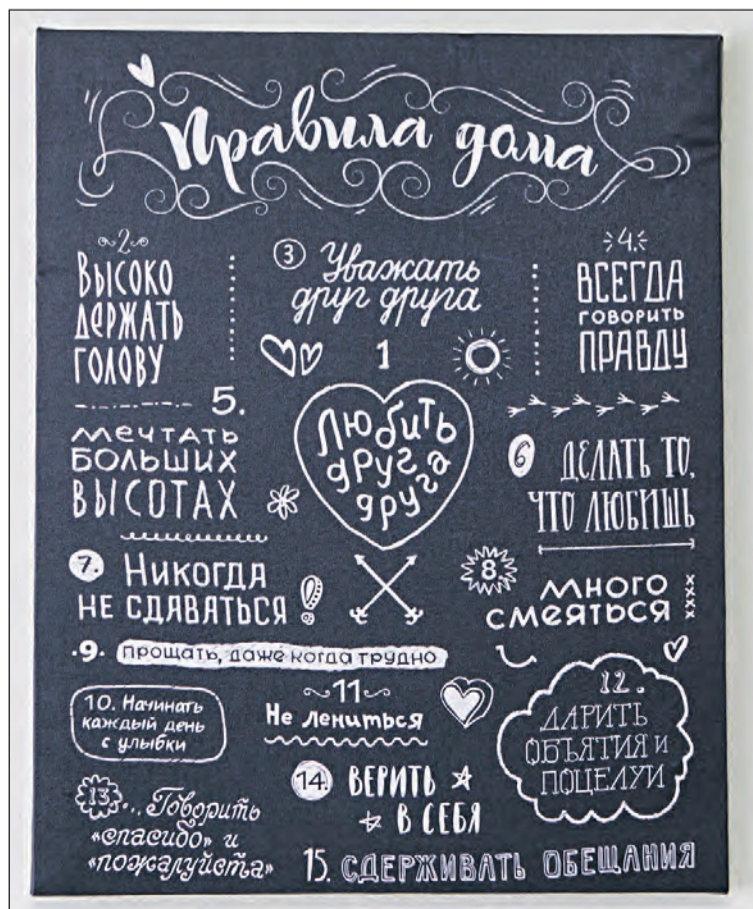 Правила дома
2
ВЫСОКО
ДЕРЖАТЬ
ГОЛОВУ
3 Уважать
друг друга
4.
ВСЕГДА
ГОВОРИТЬ
ПРАВДУ
1
Любить
друг
друга
5.
мечтать
БОЛЬШИХ
ВЫСОТАХ
6 ДЕЛАТЬ ТО,
ЧТО ЛЮБИШЬ
7. Никогда
НЕ СДАВАТЬСЯ!
8. много
смеяться
.9. прощать, даже когда трудно
10. Начинать
каждый день
с улыбки
11
Не лениться
12.
ДАРИТЬ
ОБЪЯТИЯ И
ПОЦЕЛУИ
13... Говорить
«спасибо» и
«пожалуйста»
14. ВЕРИТЬ
В СЕБЯ
15. СДЕРЖИВАТЬ ОБЕЩАНИЯ